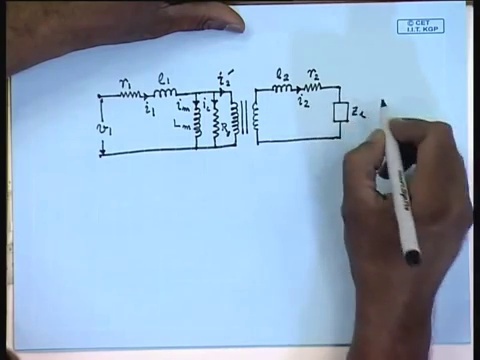 © CET
I.I.T. KGP
r₁ l₁ i₂' l₂ r₂
i₁ iₘ i₂
v₁ Lₘ Z_L